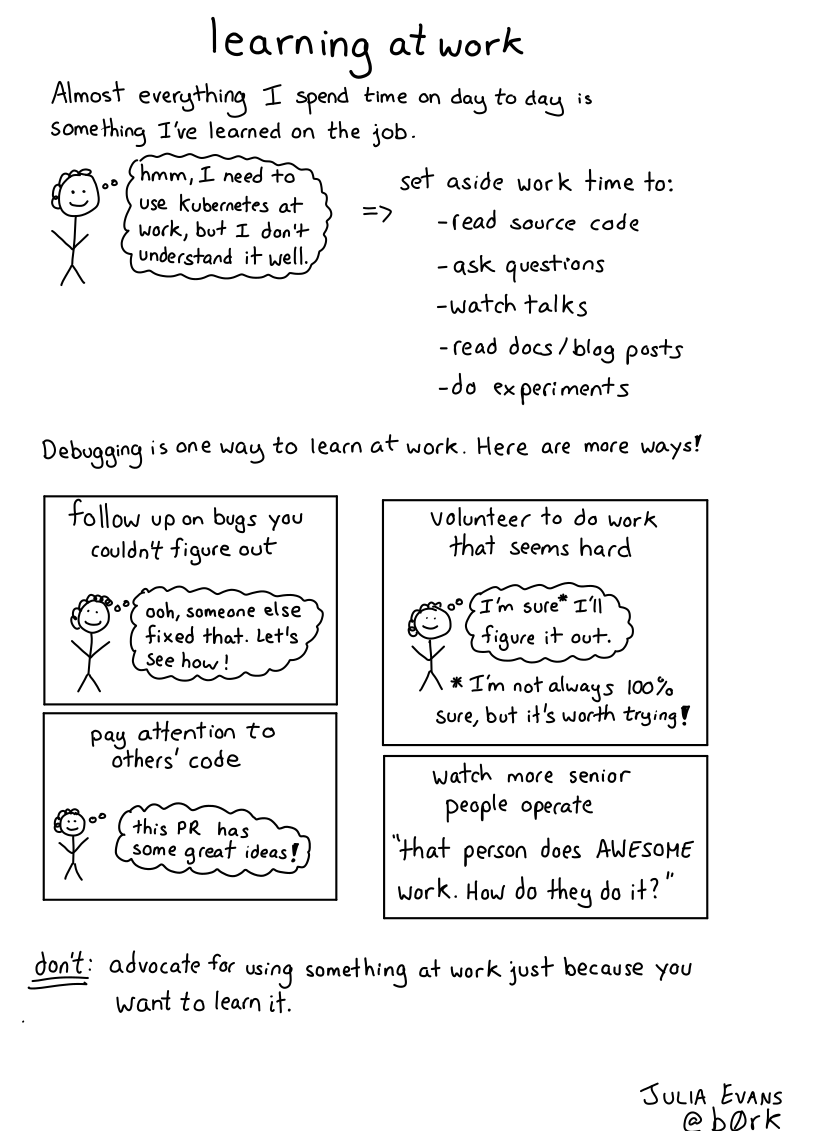 learning at work
Almost everything I spend time on day to day is
something I've learned on the job.
hmm, I need to
use Kubernetes at
work, but I don't
understand it well.
=> set aside work time to:
-read source code
-ask questions
-watch talks
-read docs/blog posts
-do experiments
Debugging is one way to learn at work. Here are more ways!
follow up on bugs you
couldn't figure out
ooh, someone else
fixed that. Let's
see how!
volunteer to do work
that seems hard
I'm sure* I'll
figure it out.
* I'm not always 100%
sure, but it's worth trying!
pay attention to
others' code
this PR has
some great ideas!
watch more senior
people operate
"that person does AWESOME
work. How do they do it?"
don't: advocate for using something at work just because you
want to learn it.
JULIA EVANS
@b0rk